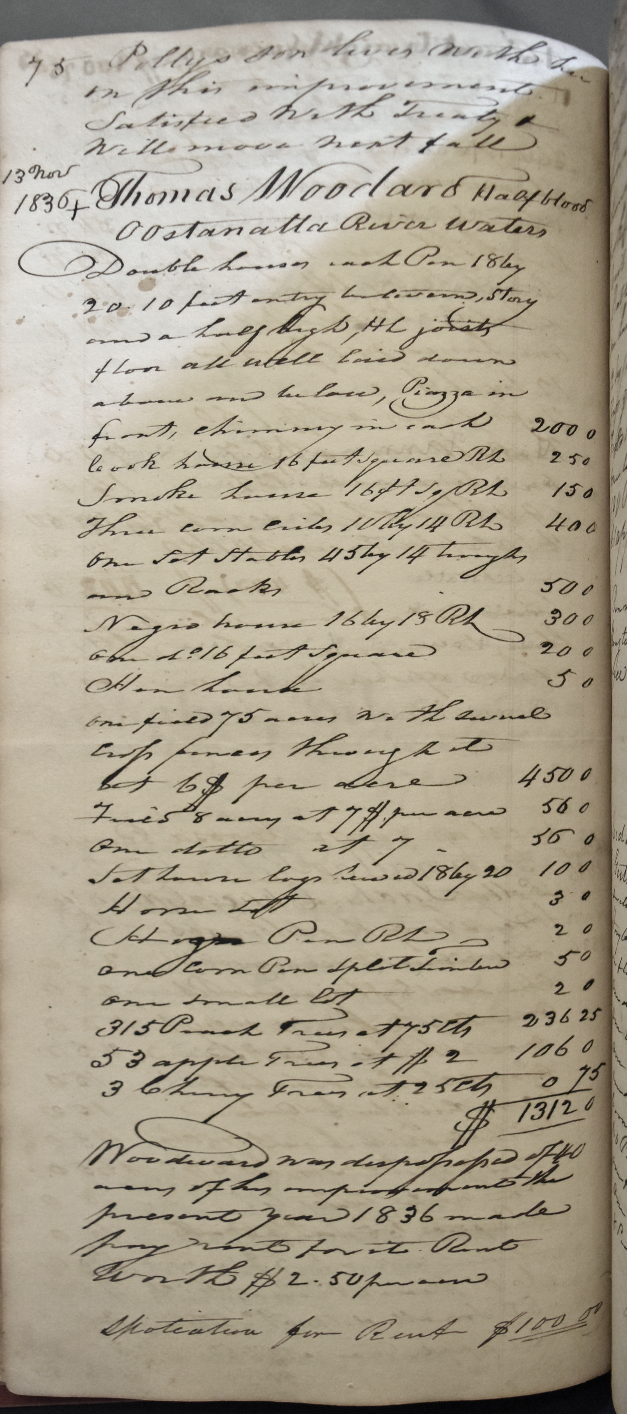 75 Pollys Son lives with her
on this improvement
Satisfied with Treaty &
Will move next fall
13th Nov
1836 + Thomas Woodard Half blood
Oostanalla River Waters
Double houses each Pen 18 by
20. 10 feet entry between, Story
and a half high, Hl joists
floor all well laid down
above and below, Piazza in
front, chimney in each 200 0
Cook house 16 feet Square Rh 25 0
Smoke house 16 ft Sq Rh 15 0
Three corn cribs 10 by 14 Rh 40 0
one Set Stables 45 by 14 troughs
and Racks 50 0
Negro house 16 by 18 Rh 30 0
one do 16 feet Square 20 0
Hen house 5 0
one field 75 acres with several
cross fences through it
at 6$ per acre 450 0
Field 8 acres at 7$ per acre 56 0
One ditto at 7 56 0
Set house logs hewed 18 by 20 10 0
Horse Lott 3 0
Hog Pen Rh 2 0
one Corn Pen Split timber 5 0
one small lot 2 0
315 Peach Trees at 75 Cts 236 25
53 apple Trees at $ 2 106 0
3 Cherry Trees at 25 Cts 0 75
$ 1312 0
Woodward was dispossessed of 40
acres of his improvement the
present year 1836 made
pay rent for it. Rent
Worth $ 2.50 per acre
Spoliation for Rent $ 100 00